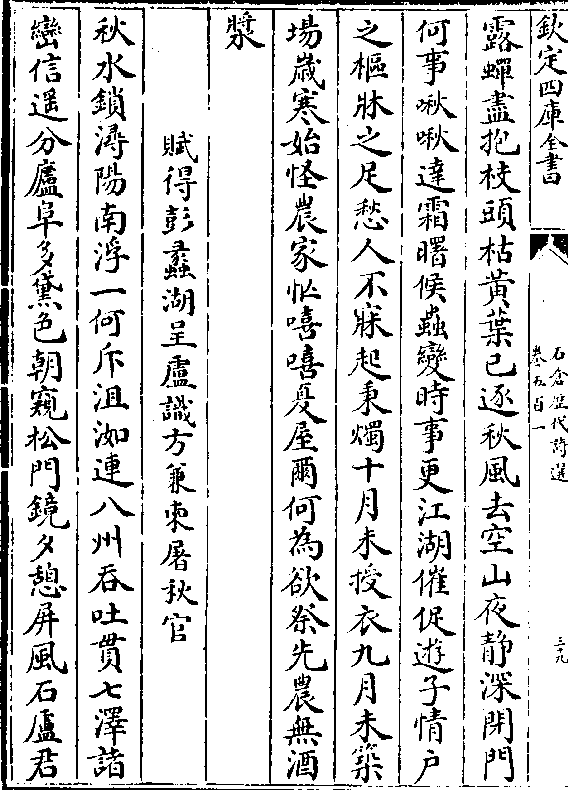 欽定四庫全書
石倉歷代詩選
卷五百一
三九
露蟬盡抱枝頭枯黃葉已逐秋風去空山夜静深閉門
何事啾啾達霜曙候蟲變時事更江湖催促遊子情户
之樞牀之足愁人不寐起秉燭十月未授衣九月未築
場歲寒始怪農家忙嘻嘻夏屋爾何為欲祭先農無酒
漿
賦得彭蠡湖呈盧識方兼柬屠秋官
秋水鎖潯陽南浮一何斥沮洳連八州吞吐貫七澤諸
巒信遥分廬阜多黛色朝窺松門鏡夕憩屏風石廬君